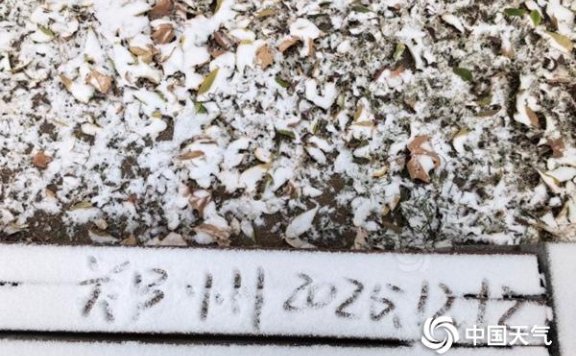 郑州 2025.12.12
中国天气